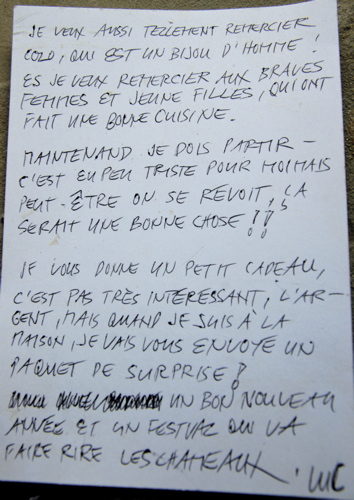 JE VEUX AUSSI TELLEMENT REMERCIER
COLO, QUI EST UN BIJOU D'HOMME!
ES JE VEUX REMERCIER AUX BRAVES
FEMMES ET JEUNE FILLES, QUI ONT
FAIT UNE BONNE CUISINE.
MAINTENAND JE DOIS PARTIR –
C'EST EU PEU TRISTE POUR MOI MAIS
PEUT-ÊTRE ON SE REVOIT, ÇA
SERAIT UNE BONNE CHOSE!!
JE VOUS DONNE UN PETIT CADEAU,
C'EST PAS TRÈS INTERESSANT, L'AR-
GENT, MAIS QUAND JE SUIS À LA
MAISON, JE VAIS VOUS ENVOYE UN
PAQUET DE SURPRISE!
UN BON NOUVEAU
ANNÉE ET UN FESTVAL QU VA
FAIRE RIRE LES CHAMEAUX. LUC